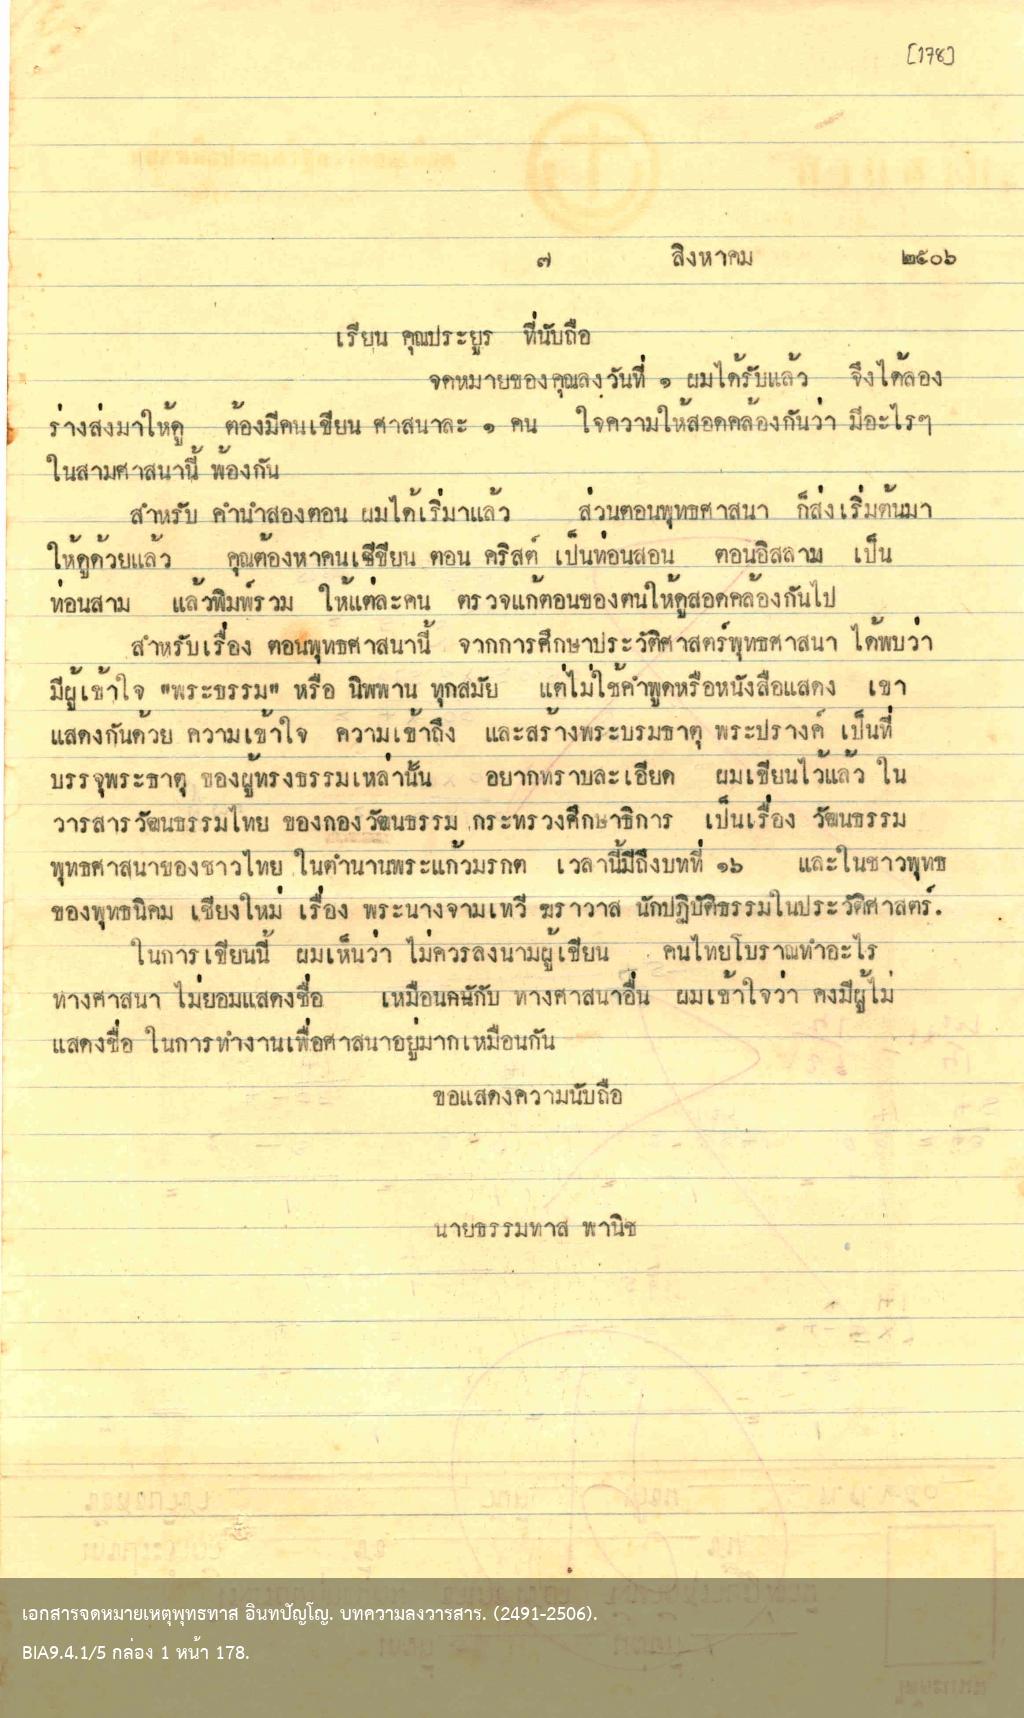 [178]
๗ สิงหาคม ๒๕๐๖
เรียน คุณประยูร ที่นับถือ
จดหมายของคุณลงวันที่ ๑ ผมได้รับแล้ว จึงได้ลอง
ร่างส่งมาให้ดู ต้องมีคนเขียน ศาสนาละ ๑ คน ใจความให้สอดคล้องกันว่า มีอะไรๆ
ในสามศาสนานี้ พ้องกัน
สำหรับ คำนำสองตอน ผมได้เริ่มาแล้ว ส่วนตอนพุทธศาสนา ก็ส่งเริ่มต้นมา
ให้ดูด้วยแล้ว คุณต้องหาคนเขียน ตอน คริสต์ เป็นท่อนสอน ตอนอิสลาม เป็น
ท่อนสาม แล้วพิมพ์รวม ให้แต่ละคน ตรวจแก้ตอนของตนให้ดูสอดคล้องกันไป
สำหรับเรื่อง ตอนพุทธศาสนานี้ จากการศึกษาประวัติศาสตร์พุทธศาสนา ได้พบว่า
มีผู้เข้าใจ "พระธรรม" หรือ นิพพาน ทุกสมัย แต่ไม่ใช้คำพูดหรือหนังสือแสดง เขา
แสดงกันด้วย ความเข้าใจ ความเข้าถึง และสร้างพระบรมธาตุ พระปรางค์ เป็นที่
บรรจุพระธาตุ ของผู้ทรงธรรมเหล่านั้น อยากทราบละเอียด ผมเขียนไว้แล้ว ใน
วารสารวัฒนธรรมไทย ของกองวัฒนธรรม กระทรวงศึกษาธิการ เป็นเรื่อง วัฒนธรรม
พุทธศาสนาของชาวไทย ในตำนานพระแก้วมรกต เวลานี้มีถึงบทที่ ๑๖ และในชาวพุทธ
ของพุทธนิคม เชียงใหม่ เรื่อง พระนางจามเทวี ฆราวาส นักปฏิบัติธรรมในประวัติศาสตร์.
ในการเขียนนี้ ผมเห็นว่า ไม่ควรลงนามผู้เขียน คนไทยโบราณทำอะไร
ทางศาสนา ไม่ยอมแสดงชื่อ เหมือนกับ ทางศาสนาอื่น ผมเข้าใจว่า คงมีผู้ไม่
แสดงชื่อ ในการทำงานเพื่อศาสนาอยู่มากเหมือนกัน
ขอแสดงความนับถือ
นายธรรมทาส พานิช
เอกสารจดหมายเหตุพุทธทาส อินทปัญโญ. บทความลงวารสาร. (2491-2506).
BIA9.4.1/5 กล่อง 1 หน้า 178.